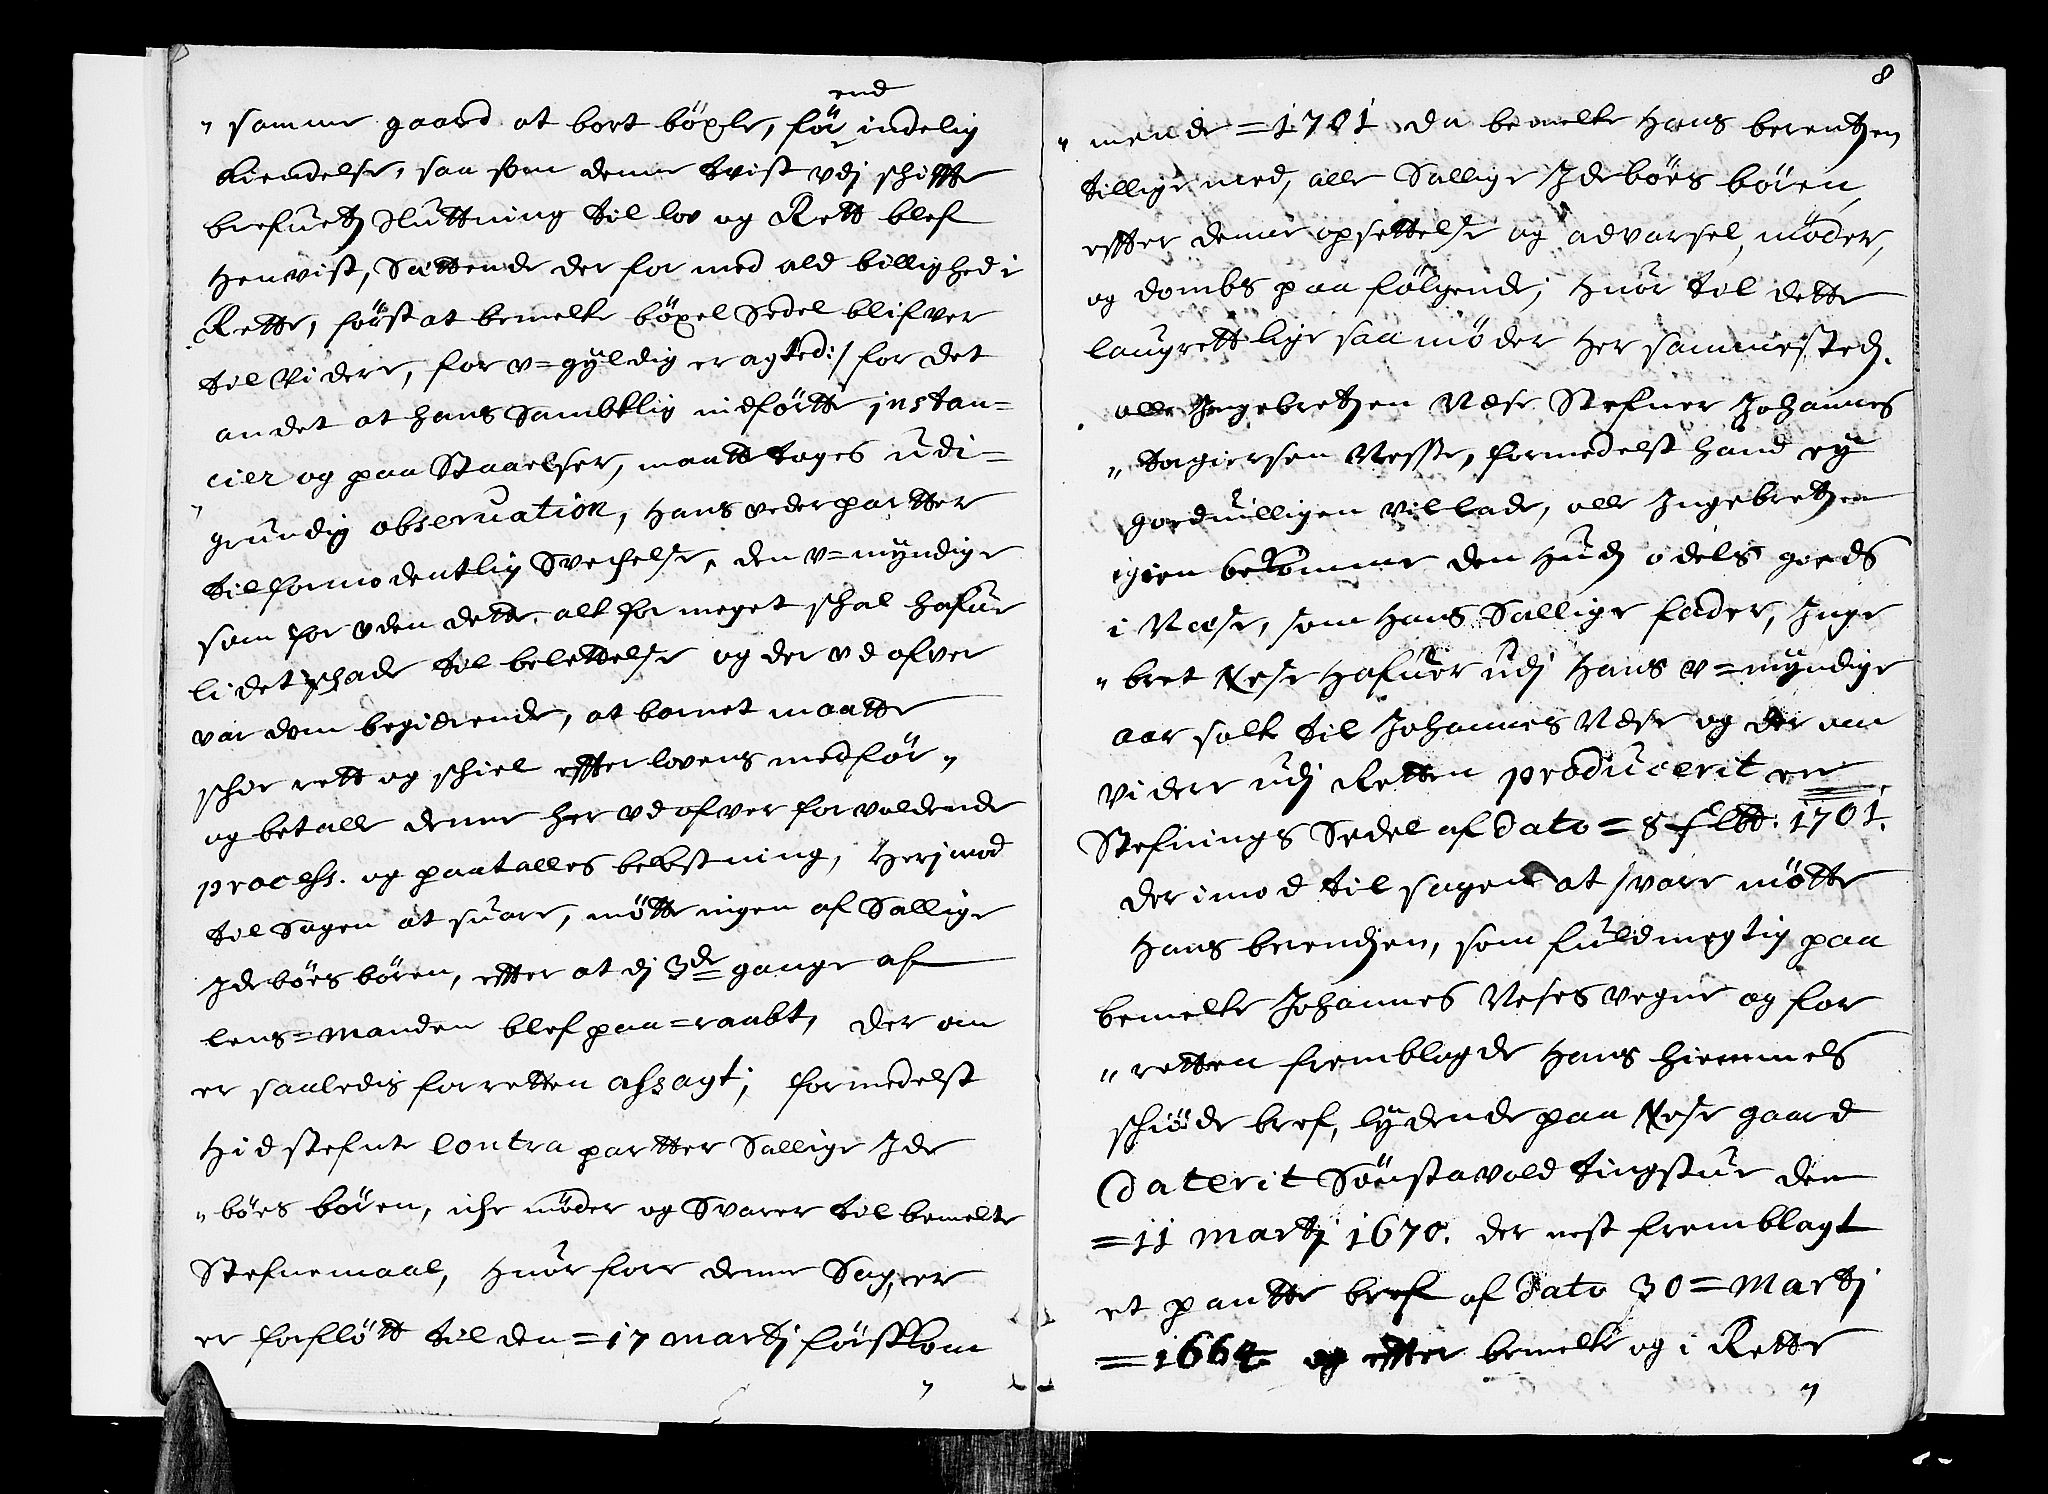 end
" samme gaard at bort böxle, för indelig
kiendelse, saa som denne tvist udj schifftte
brefuetz sluttning til lov og Rett blef
henvist, Sættende der for med ald billighed i
Rette, först at bemelte böxel Sedel blifver
til Videre, for u=gyldig eragted:/ for det
andet at hans Sambtlig indförtte instan=
cier og paa Staaelser, maatte tages udi=
" grundig observation, hans vederpartter
til formodentlig Svechelse, den u=myndige
som for uden dette alt for meget schal hafue
lidet schade til belettelse og der ud ofver
var dom begierende, at barnet maatte
schee rett og schiel effter lovens medför "
og betalle denne her ud ofver forvoldende
process. og paatalles bekostning, Herjmod
til Sagen at suare, mötte ingen af Sallige
Ide böes bören, efter at dj 3de gange af
lens=manden blef paa=raabt, der om
er saaledis for retten afsagt; formedelst
hidstefnte Contra partter Sallige Ide
" böes bören, iche möder og Svarer til bemelte
Stefnemaal, huor fore denne Sag, er
er forflött til den =17 martj förstkom
"
8
" mende =1701 da bemelte Hans berentzen
tillige med, alle Sallige Ide böes bören
effter denne opsettelse og advarsel, möder,
og dombs paa fölgende; huor til dette
laugrett lige saa möder her sammesteds.
olle Ingebretzen Næse Stefner Johannes
" Torgiersen Nesse, formedelst hand ey
goedvilligen vil lade, olle Ingebretzen
igien bekomme den Hudz odels goeds
i Næse, som hans Sallige fader, Inge
" bret Nese hafuer udj hans u=myndige
aar solt til Johannes Næse og der om
videre udj Retten producerit er
Stefnings Sedel af dato = 8 f Cbd: 1701.
der imod til sagen at svare mötte
Hans berendzen, som fuldmegtig paa
bemelte Johannes Neses vegne og for
" retten fremblagde hans hiemmels
schiöde bref, lydende paa Nese gaard
daterit Sönstavold tingstue den
=11 martj 1670. der nest fremblagt
et pantte bref af dato 30=Martj
=1664 og effter bemelte og i Rette
"